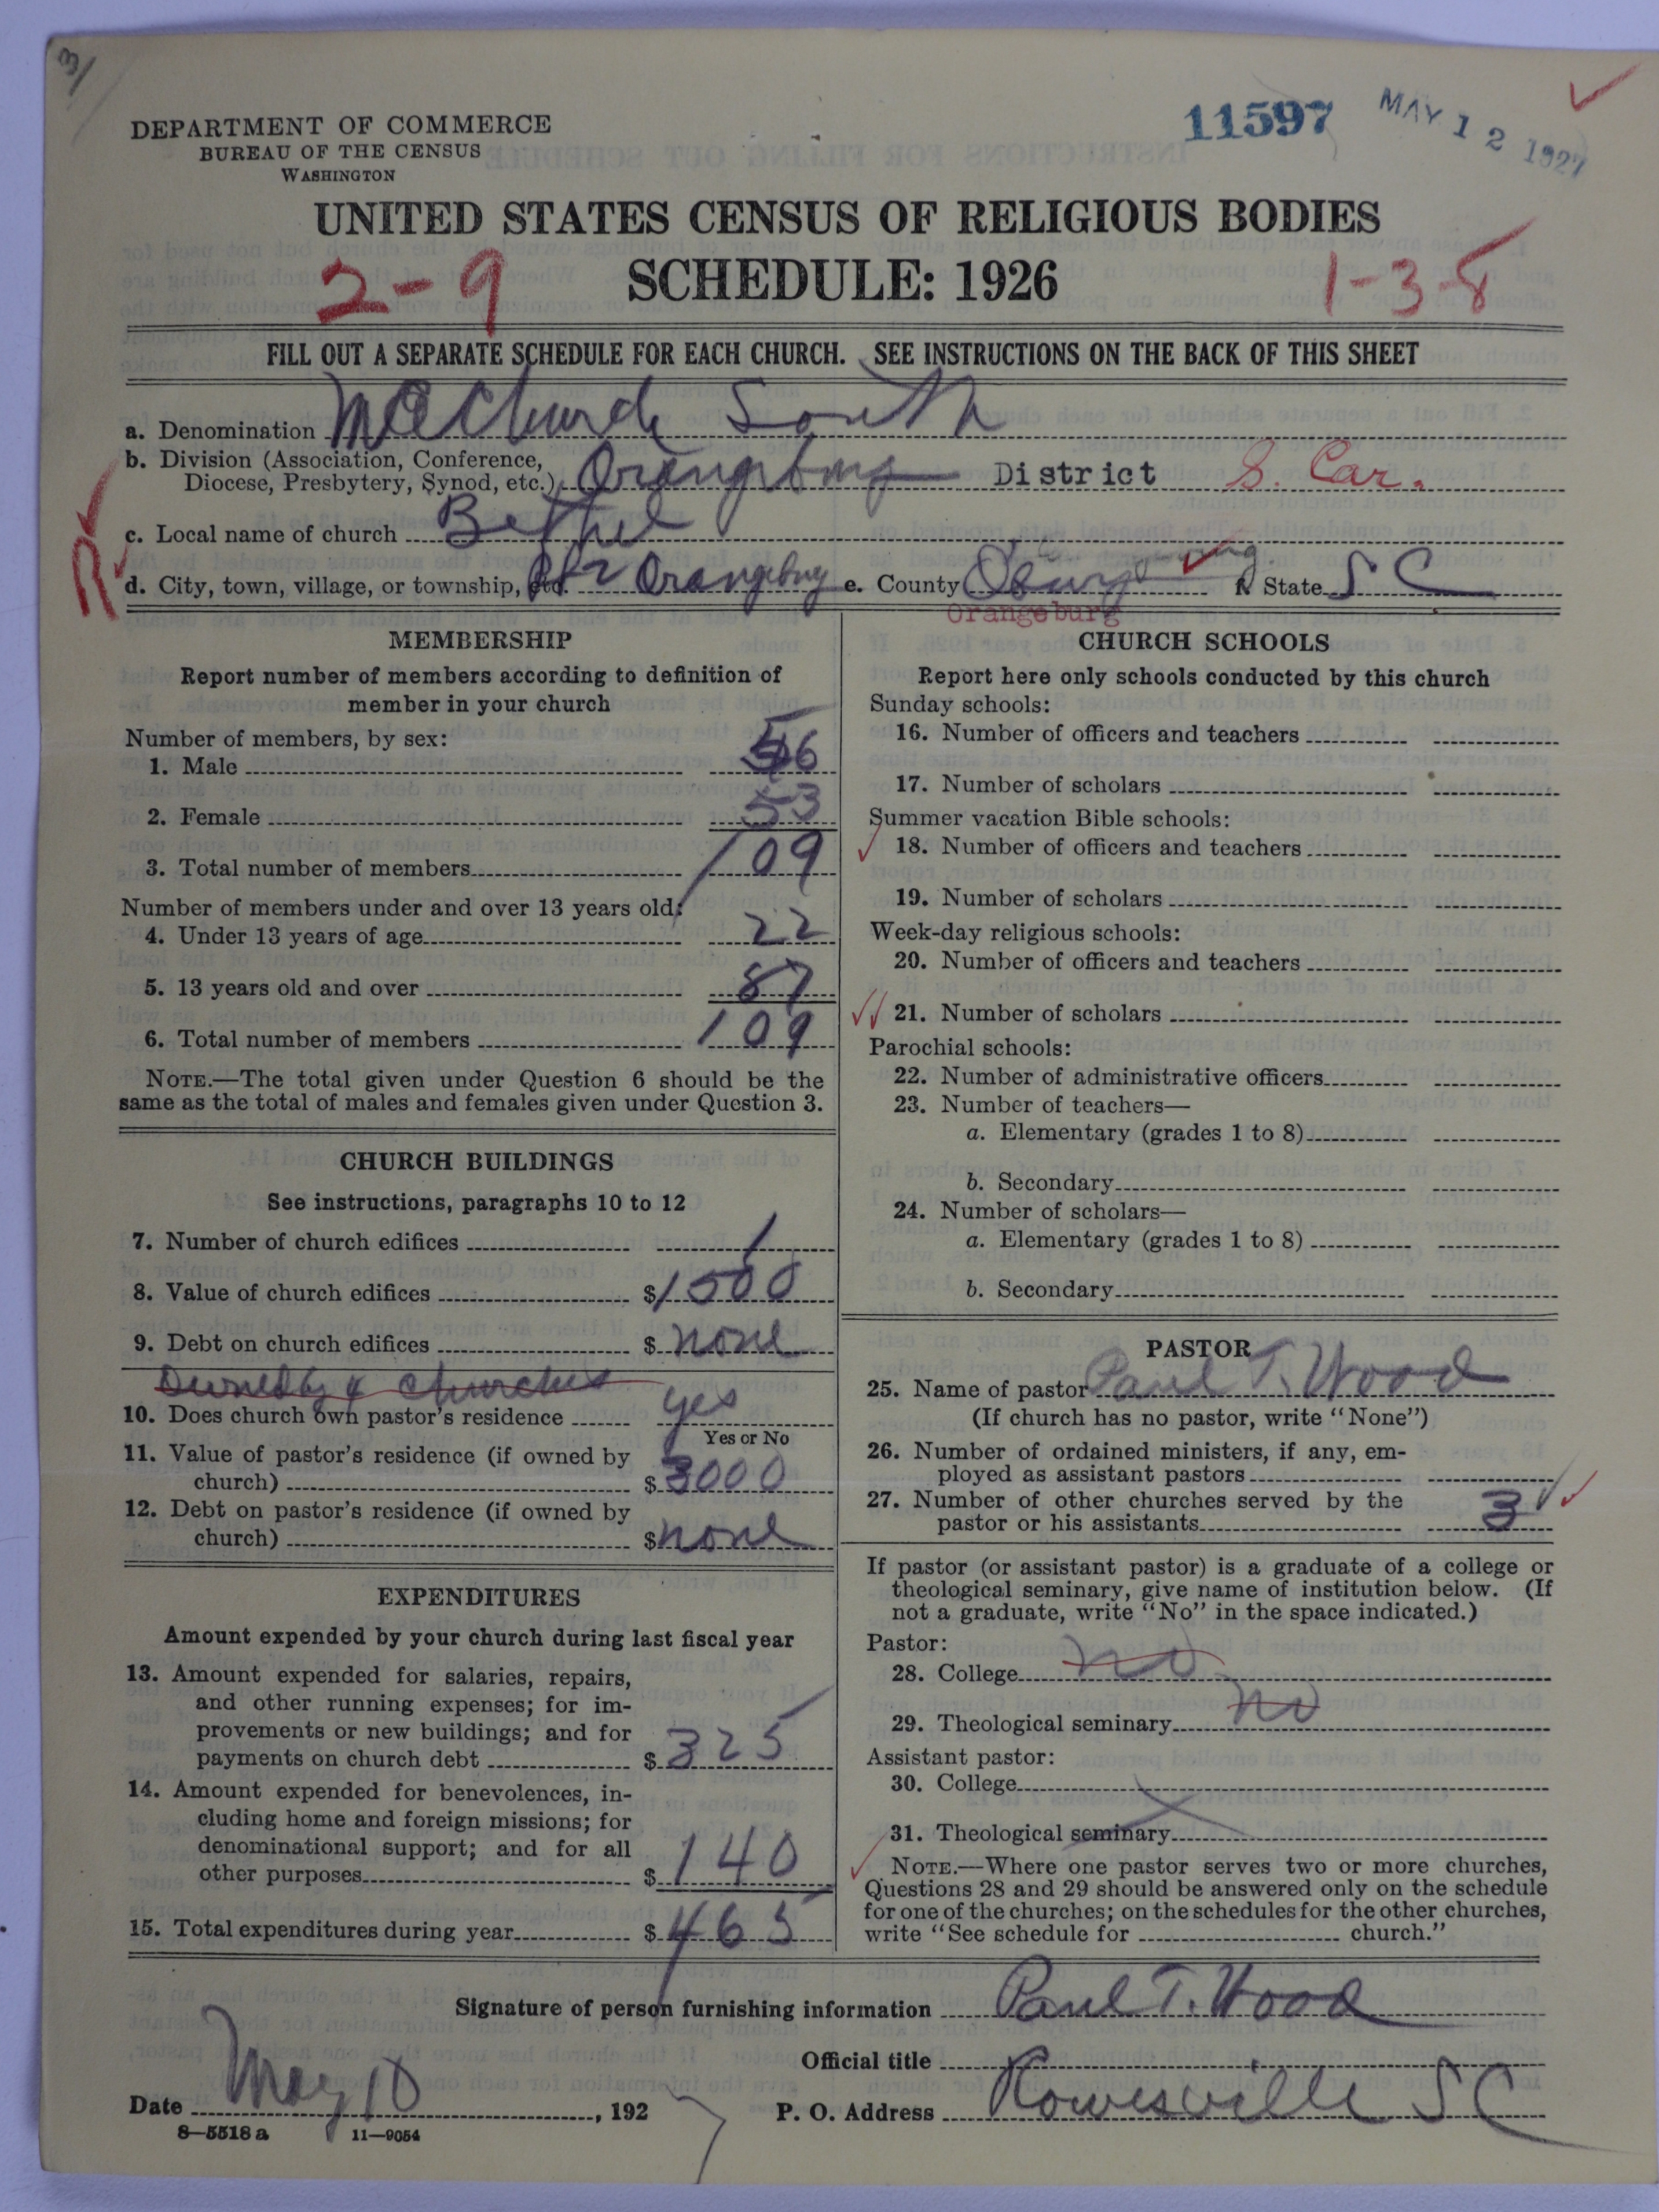 31
DEPARTMENT OF COMMERCE
BUREAU OF THE CENSUS
WASHINGTON
11597
MAY 12 1927
UNITED STATES CENSUS OF RELIGIOUS BODIES
SCHEDULE: 1926
2-9
1-3-8
FILL OUT A SEPARATE SCHEDULE FOR EACH CHURCH. SEE INSTRUCTIONS ON THE BACK OF THIS SHEET
a. Denomination ME Church South
b. Division (Association, Conference, Diocese, Presbytery, Synod, etc.) Orangeburg District S. Car.
c. Local name of church Bethel
R d. City, town, village, or township, etc. Orangeburg e. County Orangeburg f. State S C
MEMBERSHIP
Report number of members according to definition of
member in your church
Number of members, by sex:
1. Male 56
2. Female 53
3. Total number of members 109
Number of members under and over 13 years old:
4. Under 13 years of age 22
5. 13 years old and over 87
6. Total number of members 109
NOTE.—The total given under Question 6 should be the
same as the total of males and females given under Question 3.
CHURCH BUILDINGS
See instructions, paragraphs 10 to 12
7. Number of church edifices 1
8. Value of church edifices $1500
9. Debt on church edifices $ none
Owned by 4 churches
10. Does church own pastor's residence yes
Yes or No
11. Value of pastor's residence (if owned by
church) $3000
12. Debt on pastor's residence (if owned by
church) $none
EXPENDITURES
Amount expended by your church during last fiscal year
13. Amount expended for salaries, repairs,
and other running expenses; for im-
provements or new buildings; and for
payments on church debt $325
14. Amount expended for benevolences, in-
cluding home and foreign missions; for
denominational support; and for all
other purposes $140
15. Total expenditures during year $465
CHURCH SCHOOLS
Report here only schools conducted by this church
Sunday schools:
16. Number of officers and teachers
17. Number of scholars
Summer vacation Bible schools:
18. Number of officers and teachers
19. Number of scholars
Week-day religious schools:
20. Number of officers and teachers
21. Number of scholars
Parochial schools:
22. Number of administrative officers
23. Number of teachers—
a. Elementary (grades 1 to 8)
b. Secondary
24. Number of scholars—
a. Elementary (grades 1 to 8)
b. Secondary
PASTOR
25. Name of pastor Paul T. Wood
(If church has no pastor, write "None")
26. Number of ordained ministers, if any, em-
ployed as assistant pastors
27. Number of other churches served by the
pastor or his assistants 3
If pastor (or assistant pastor) is a graduate of a college or
theological seminary, give name of institution below. (If
not a graduate, write "No" in the space indicated.)
Pastor:
28. College no
29. Theological seminary no
Assistant pastor:
30. College
31. Theological seminary
NOTE.—Where one pastor serves two or more churches,
Questions 28 and 29 should be answered only on the schedule
for one of the churches; on the schedules for the other churches,
write "See schedule for church."
Signature of person furnishing information Paul T. Wood
Official title
Date May 10, 1927
P. O. Address Rowesville S C
8—5518 a 11—9054